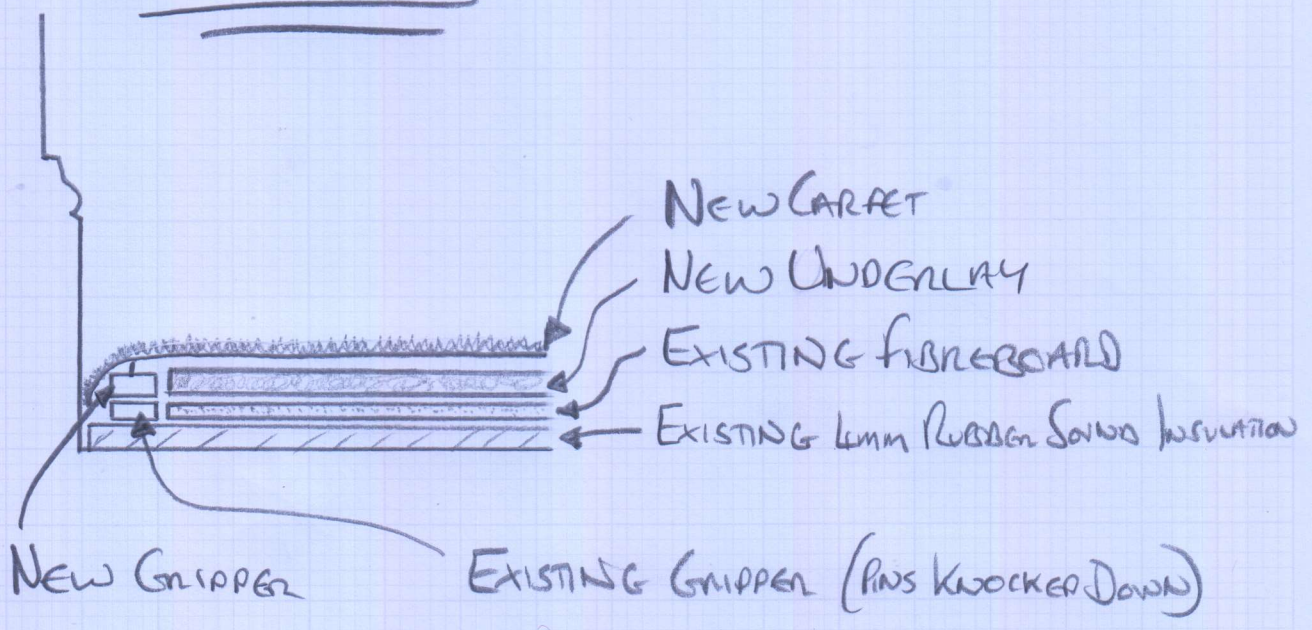 NEW CARPET
NEW UNDERLAY
EXISTING FIBREBOARD
EXISTING 4mm RUBBER SOUND INSULATION
NEW GRIPPER
EXISTING GRIPPER (PINS KNOCKED DOWN)